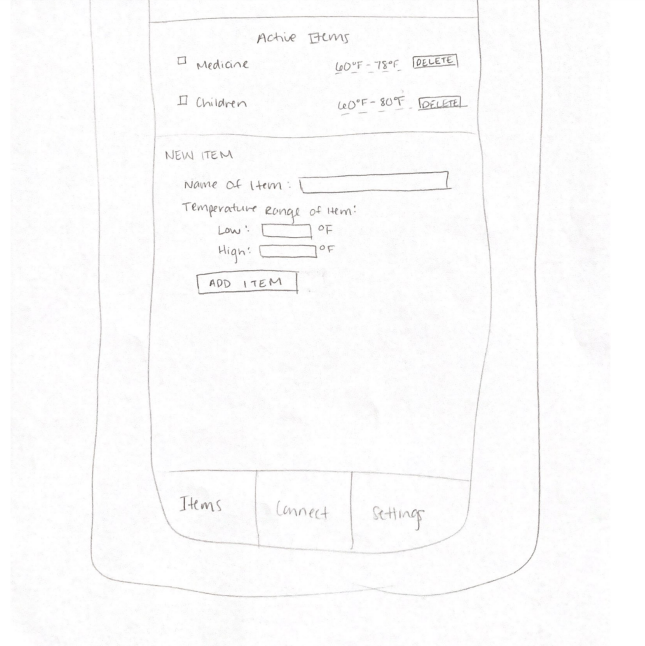 Active Items
Medicine 60°F - 78°F DELETE
Children 60°F - 80°F DELETE
NEW ITEM
Name of Item:
Temperature Range of Item:
Low: °F
High: °F
ADD ITEM
Items Connect Settings